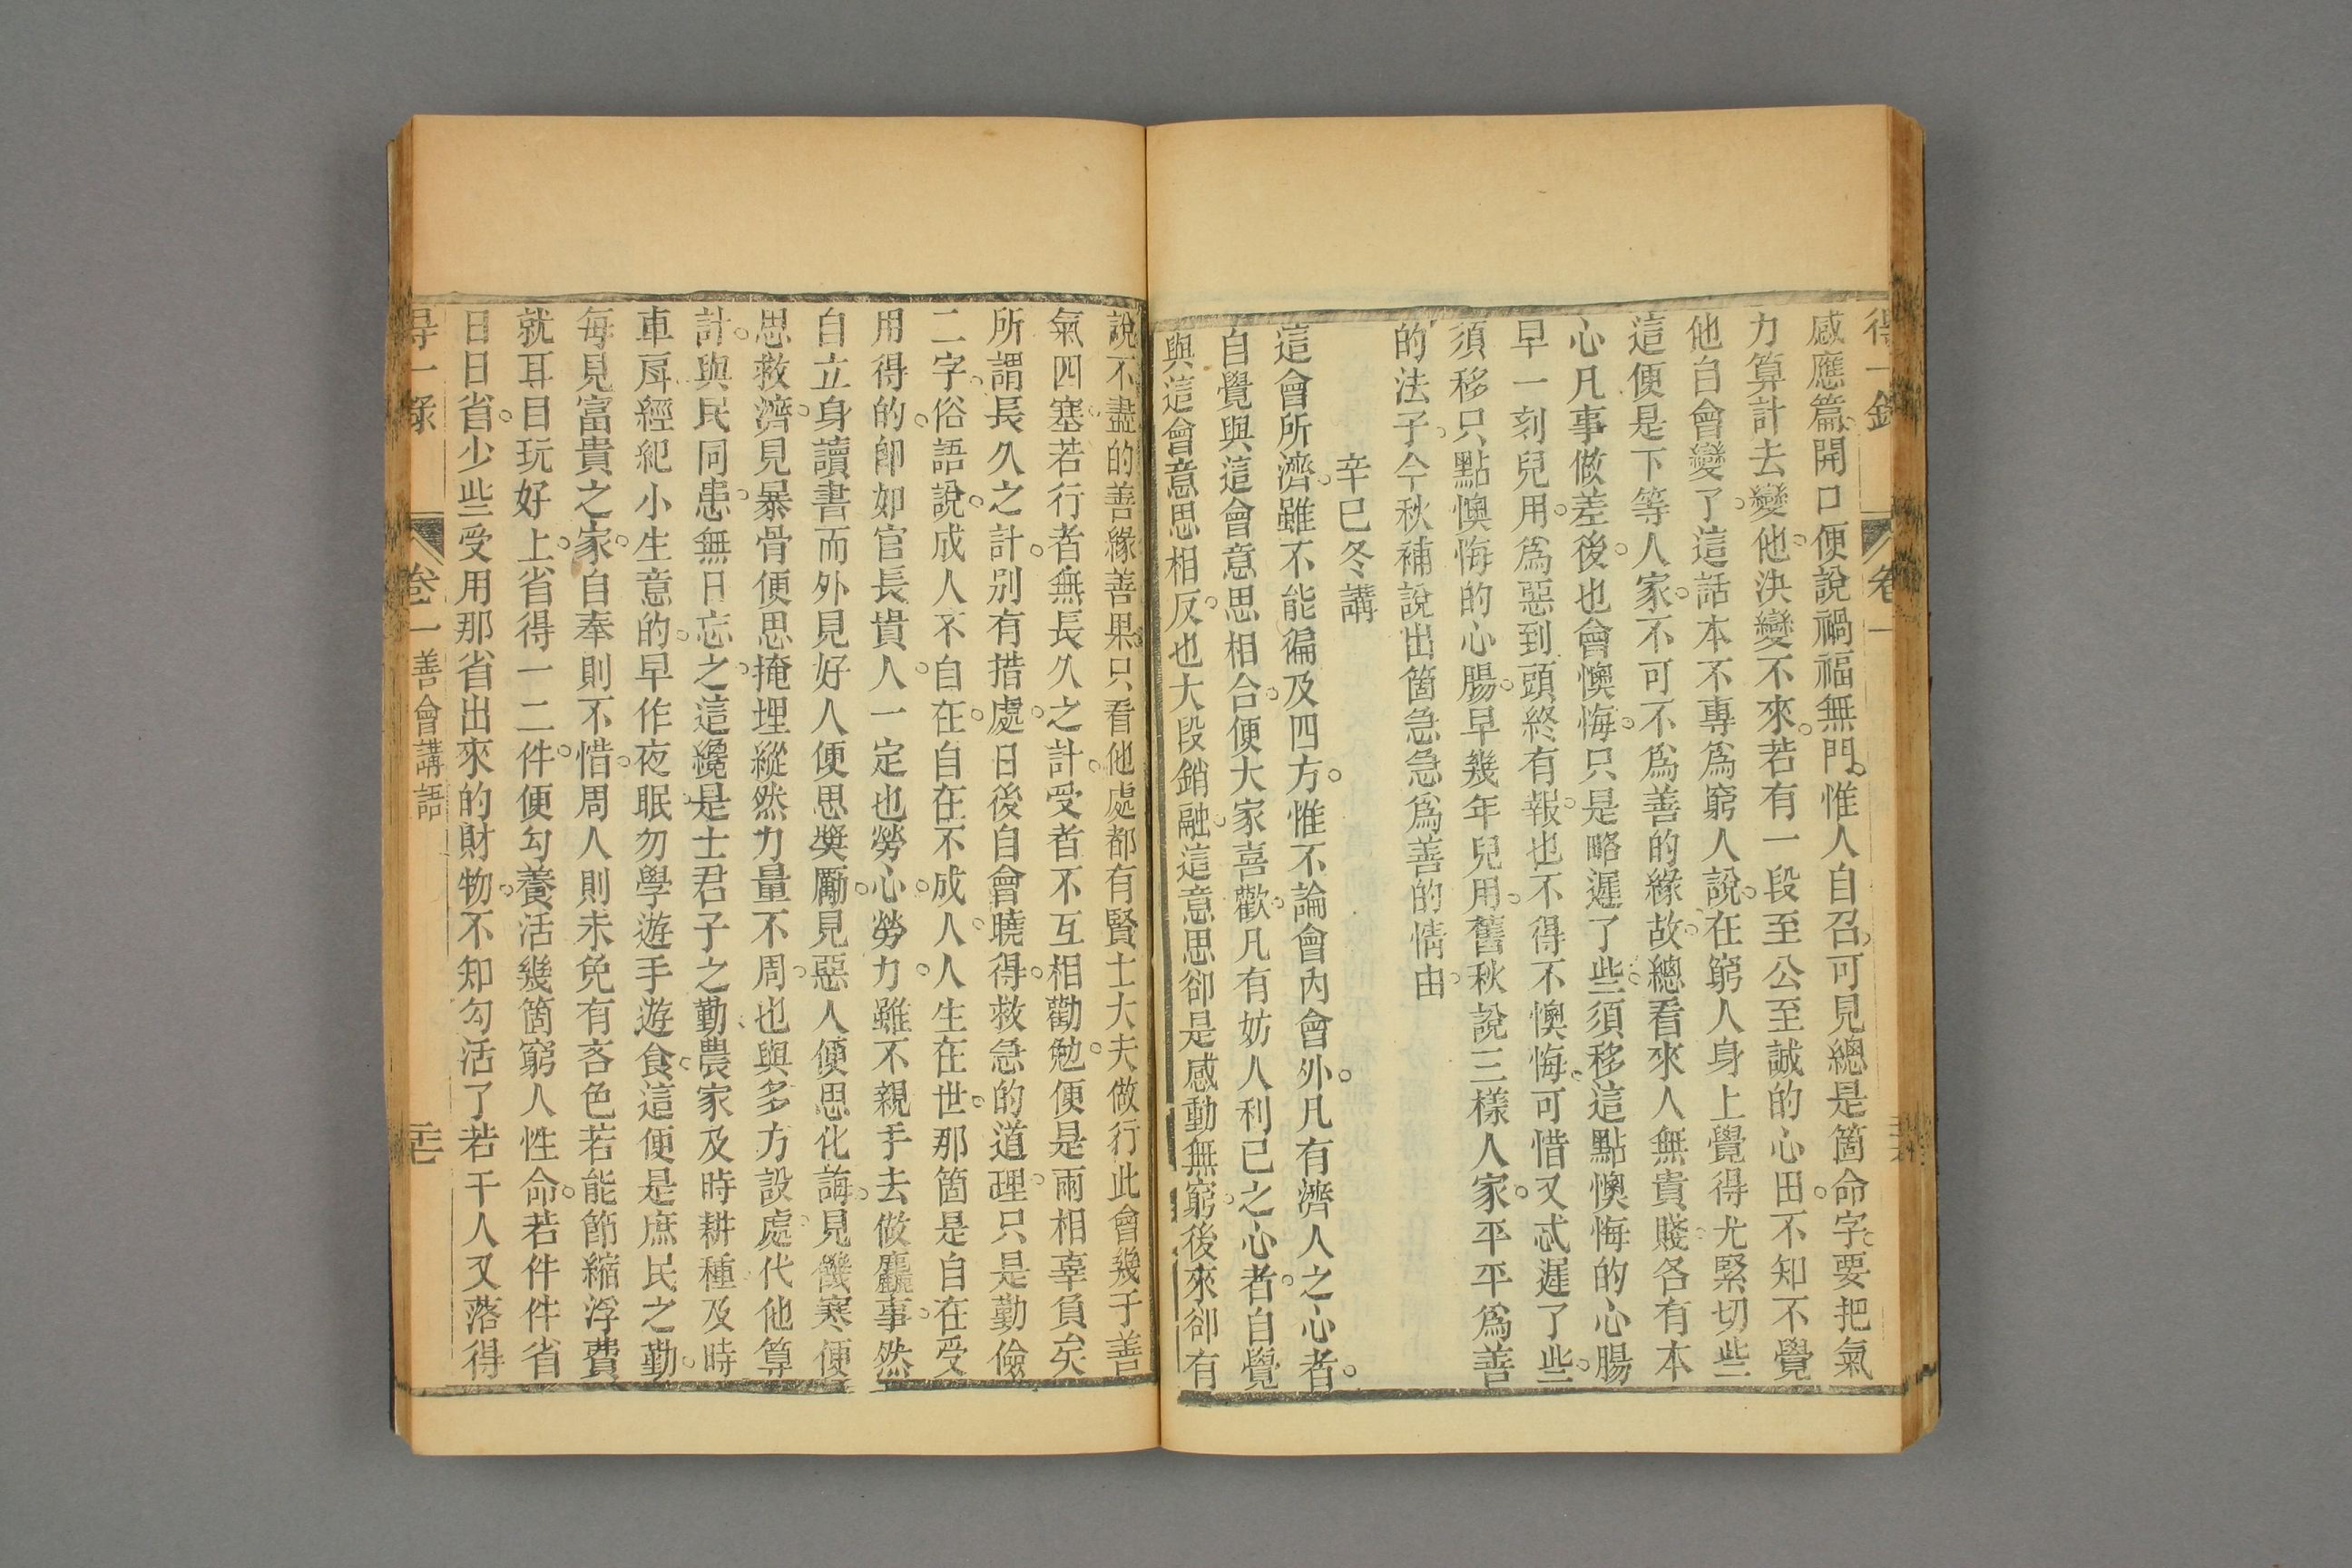 得一錄 卷一
感應篇開口便說禍福無門惟人自召可見總是箇命字要把氣
力算計去變他決變不來若有一段至公至誠的心田不知不覺
他自會變了這話本不專爲窮人說在窮人身上覺得尤緊切些
這便是下等人家不可不爲善的緣故總看來人無貴賤各有本
心凡事做差後也會懊悔只是略遲了些須移這點懊悔的心腸
早一刻兒用爲惡到頭終有報也不得不懊悔可惜又忒遲了些
須移只點懊悔的心腸早幾年兒用舊秋說三樣人家平平爲善
的法子今秋補說出箇急急爲善的情由
辛巳冬講
這會所濟雖不能徧及四方惟不論會內會外凡有濟人之心者
自覺與這會意思相合便大家喜歡凡有妨人利己之心者自覺
與這會意思相反也大段銷融這意思卻是感動無窮後來卻有
說不盡的善緣善果只看他處都有賢士大夫做行此會幾于善
氣四塞若行者無長久之計受者不互相勸勉便是兩相辜負矣
所謂長久之計別有措處日後自會曉得救急的道理只是勤儉
二字俗語說成人不自在自在不成人人生在世那箇是自在受
用得的即如官長貴人一定也勞心勞力雖不親手去做麤事然
自立身讀書而外見好人便思獎勵見惡人便思化誨見饑寒便
思救濟見暴骨便思掩埋縱然力量不周也與多方設處代他算
計與民同患無日忘之這纔是士君子之勤農家及時耕種及時
車戽經紀小生意的早作夜眠勿學遊手遊食這便是庶民之勤
每見富貴之家自奉則不惜周人則未免有吝色若能節縮浮費
就耳目玩好上省得一二件便勾養活幾箇窮人性命若件件省
日日省少些受用那省出來的財物不知勾活了若干人又落得
得一錄 卷一 善會講語